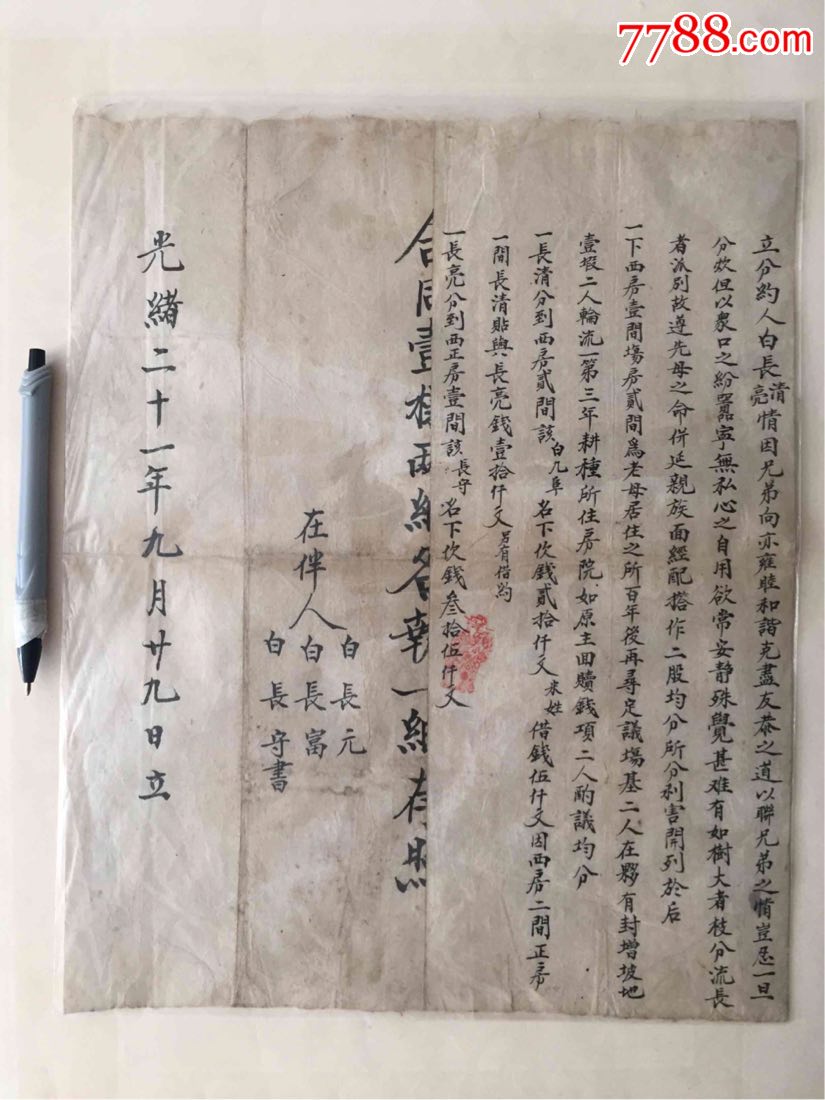 7788.com
立分約人白長清亮情因兄弟向亦雍睦和諧克盡友恭之道以聯兄弟之情豈忍一旦
分欤但以衆口之紛嚣寧無私心之自用欲常安静殊覺甚难有如樹大者枝分流長
者派別故遵先母之命併延親族面經配搭作二股均分所分利害開列於后
一下西房壹間塲房貳間爲老母居住之所百年後再尋定議塲基二人在夥有封增坡地
壹塅二人輪流一第三年耕種所住房院如原主回贖錢項二人酌議均分
一長清分到西房貳間該白九阜名下欠錢貳拾仟文米姓借錢伍仟文因西房二間正房
一間長清貼與長亮錢壹拾仟文另有借約
一長亮分到西正房壹間該長守名下欠錢叁拾伍仟文
合同壹樣兩紙各執一紙存照
在伴人
白長元
白長富
白長守書
光緒二十一年九月廿九日立